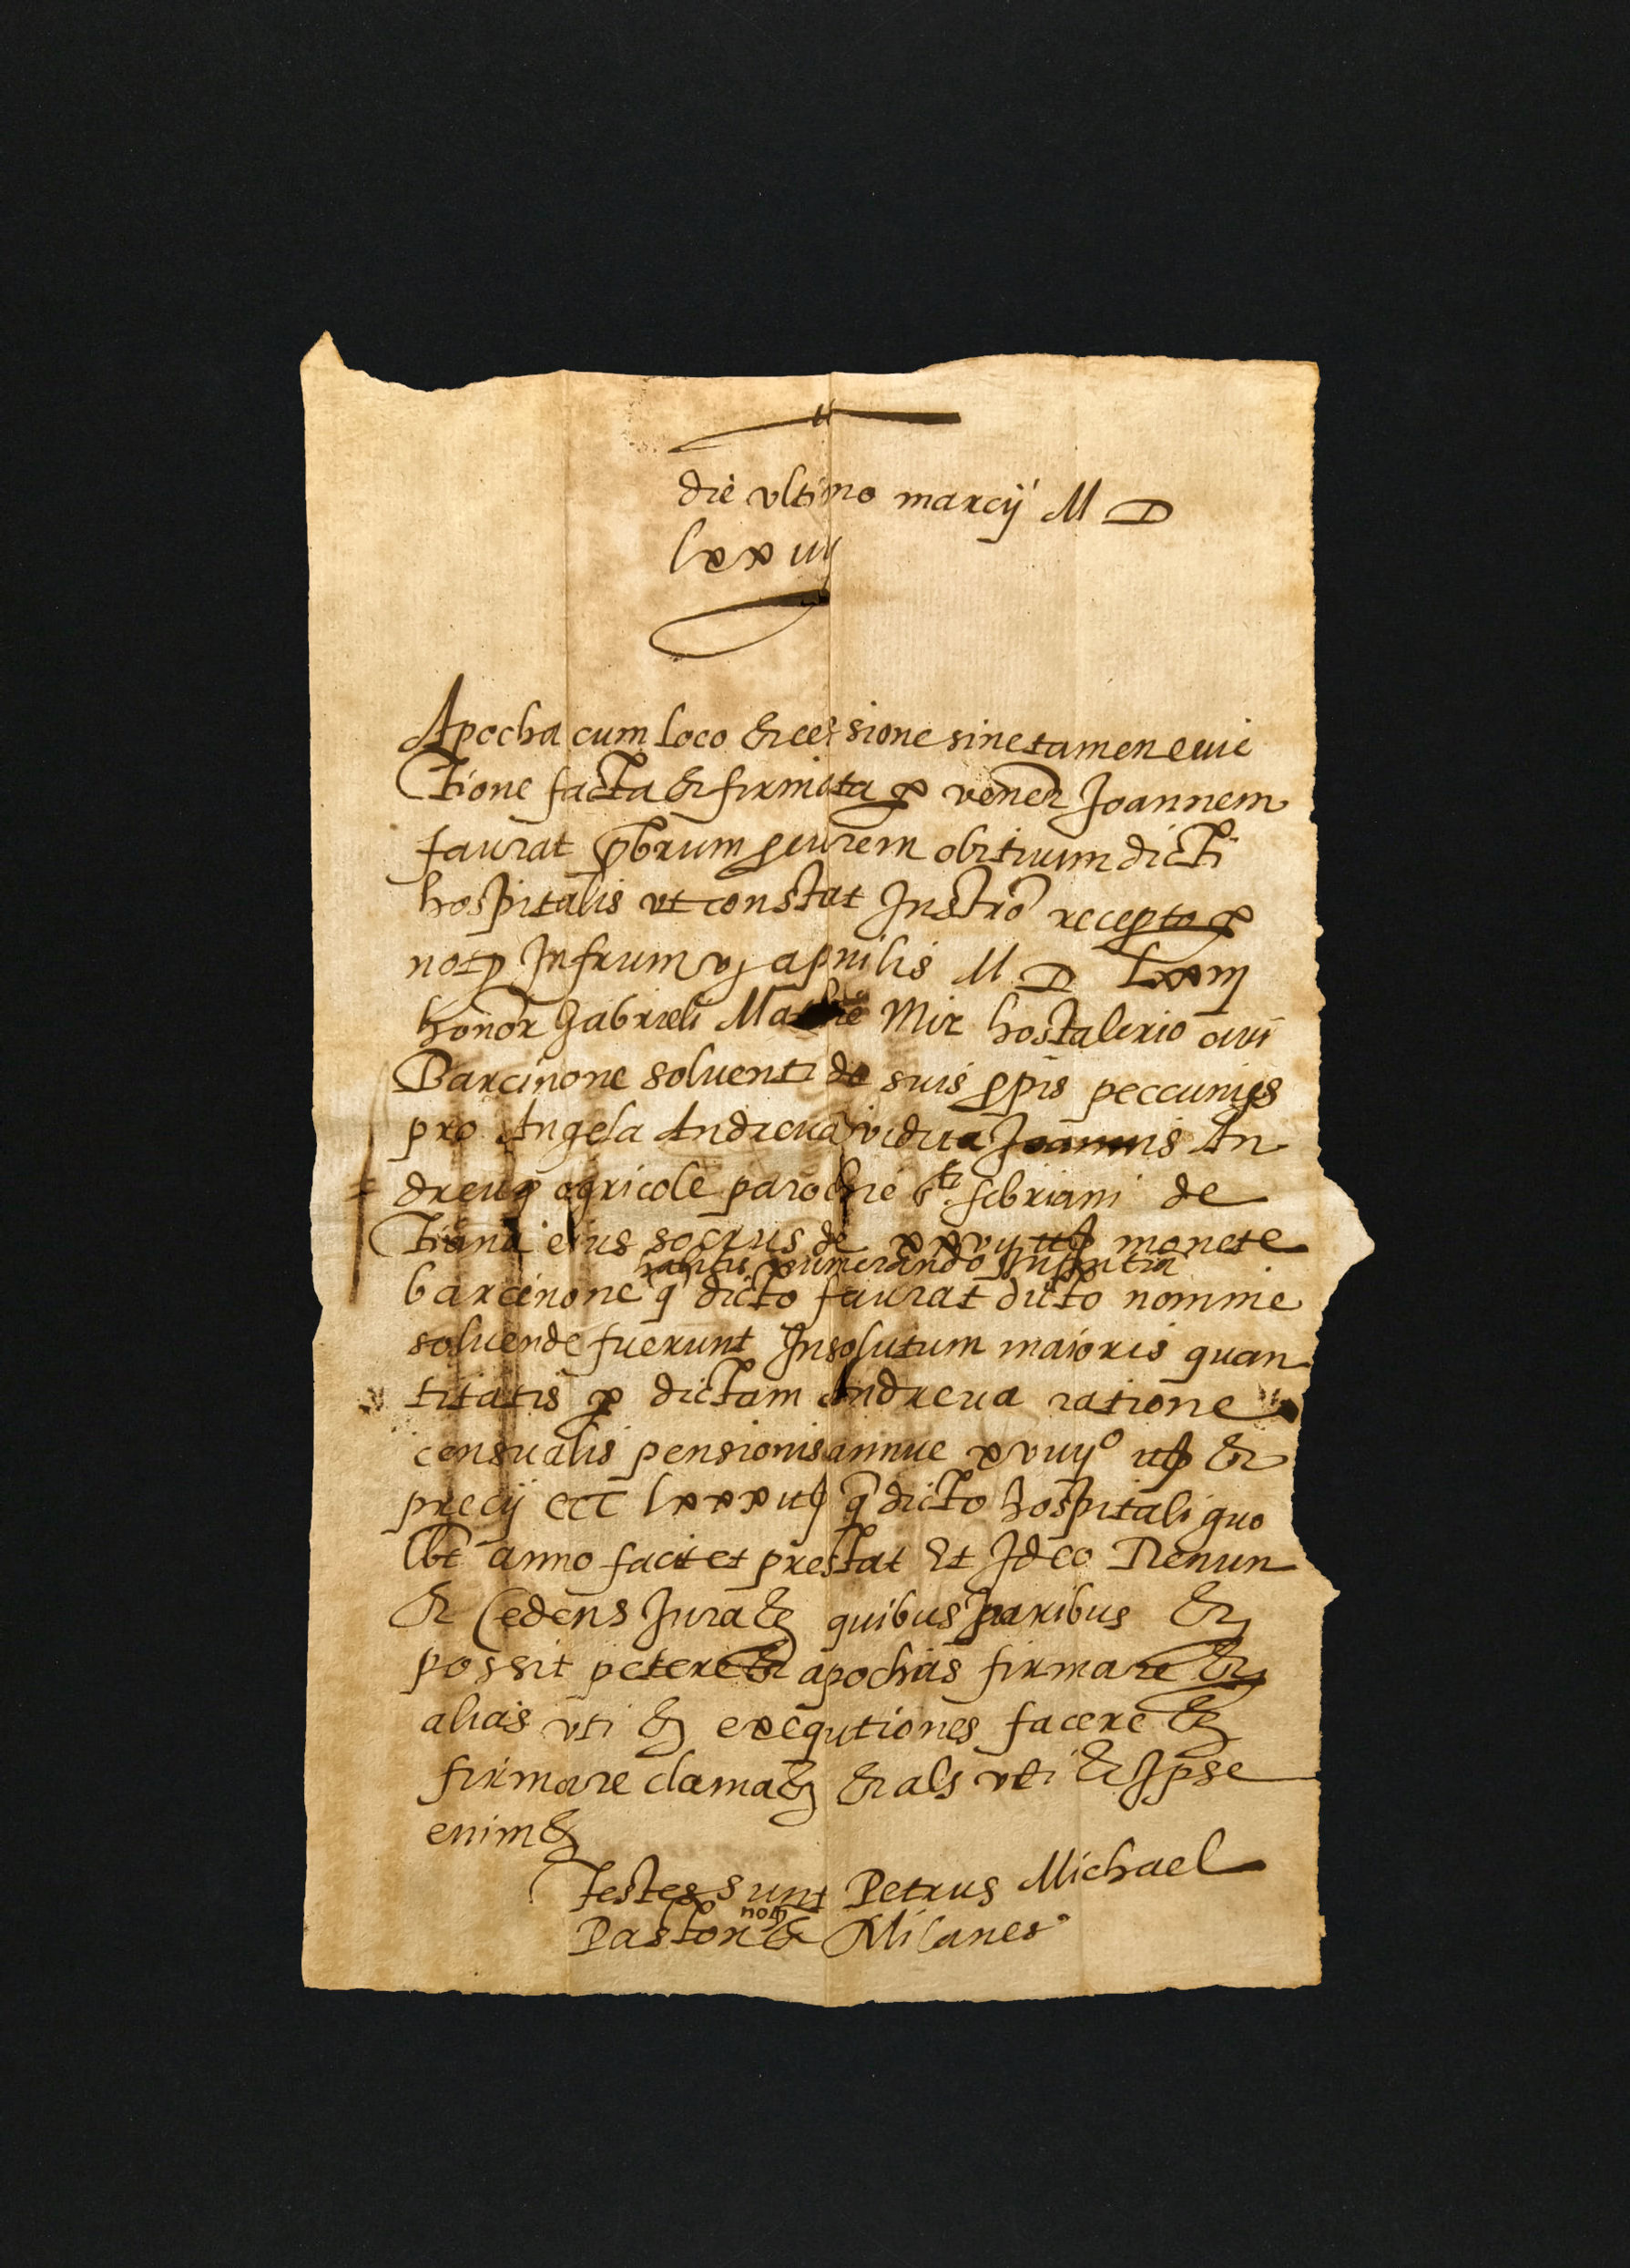 die ultimo marcij M D
lxx iiij
Apocha cum loco & cessione sine tamen evic
tione facta & firmata p vener Joannem
faurat pbrum pcurem obituum dicti
hospitalis ut constat Instro recepto p
not Infrum vj aprilis M D lxxiiij
honor Gabrieli Mir hostalerio civi
Barcinone solventi de suis ppis peccunijs
pro Angela Andreua vidua Joannis An
dreu agricole parochie Sti. Sebriani de
Tiana eius socrus de monete
habitis numerando
barcinone q dicto faurat dicto nomine
solvende fuerunt Insolutum maioris quan
titatis p dictam Andreua ratione
censualis pensionis annue xviiijº &
precij ccc lxxx q dicto hospitali quo
lbt anno facit et prestat Et Ideo Renun
& Cedens Jura & quibus Juribus &
possit petere & apochas firmare &
alias uti & exequtiones facere &
firmare clama & & als uti & Ipse
enim &
Testes sunt Petrus Michael
not
Pastor & Milanes